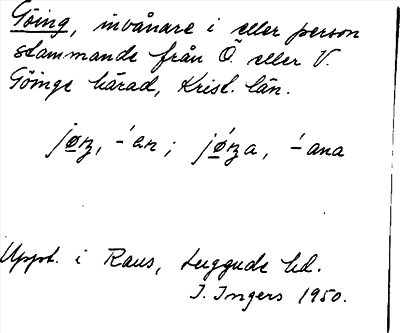 Göing, invånare i eller person
stammande från Ö. eller V.
Göinge härad, Krist. län.
jøŋ, -́an; jøŋa, -́ana
Uppt. i Raus, Luggude hd.
I. Ingers 1950.